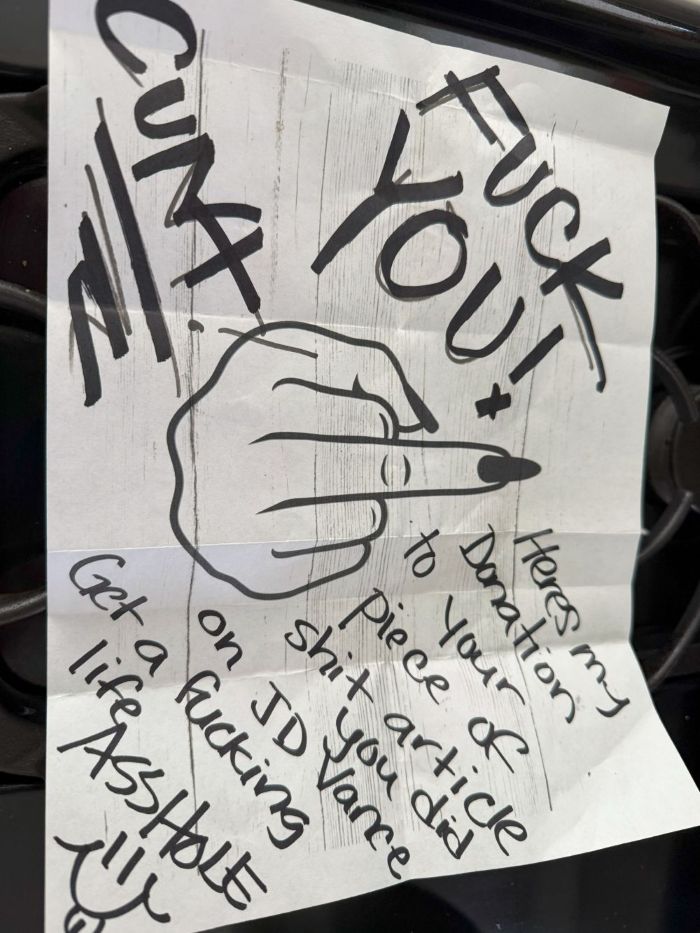 FUCK
YOU! +
CUNT
Heres my
Donation
to your
piece of
shit article
you did
on JD Vance
Get a fucking
life ASSHOLE